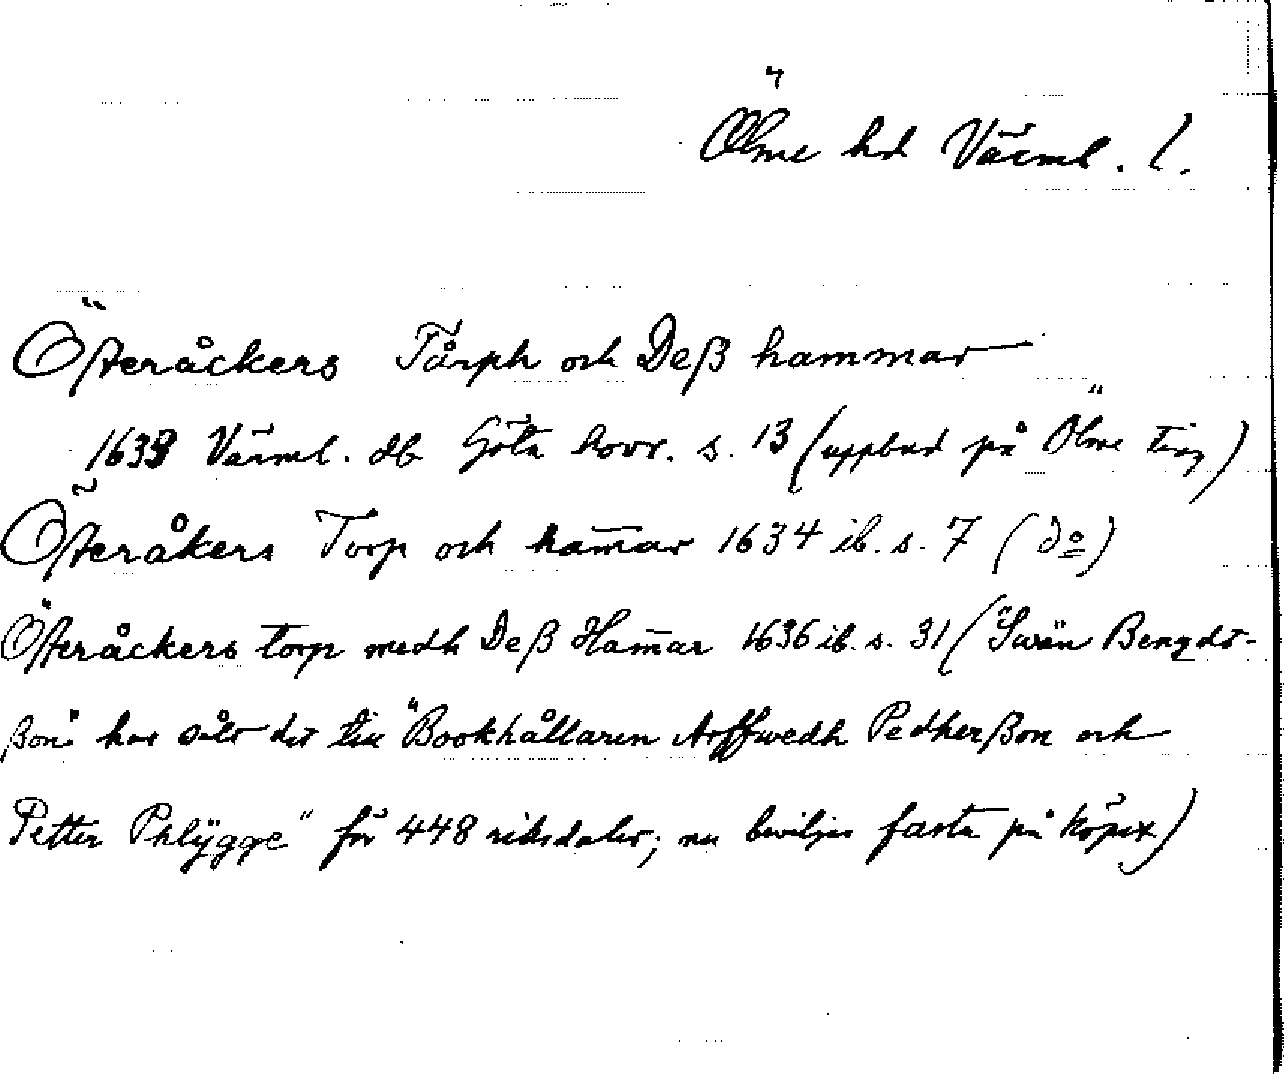 Ölme hd Värml. l.
Österåckers Tårph och Deß hammar
1633 Värml. db Göta hovr. s. 13 (uppbud på Ölme ting)
Österåkers Torp och ham̄ar 1634 ib. s. 7 (do)
Österåckers torp medh Deß Ham̄ar 1636 ib. s. 31 ("Swän Bengdt-
ßon" har sålt det till "Bookhållaren Arffwedh Pedherßon och
Petter Phlÿgge" för 448 riksdaler; nu beviljas fasta på köpet)